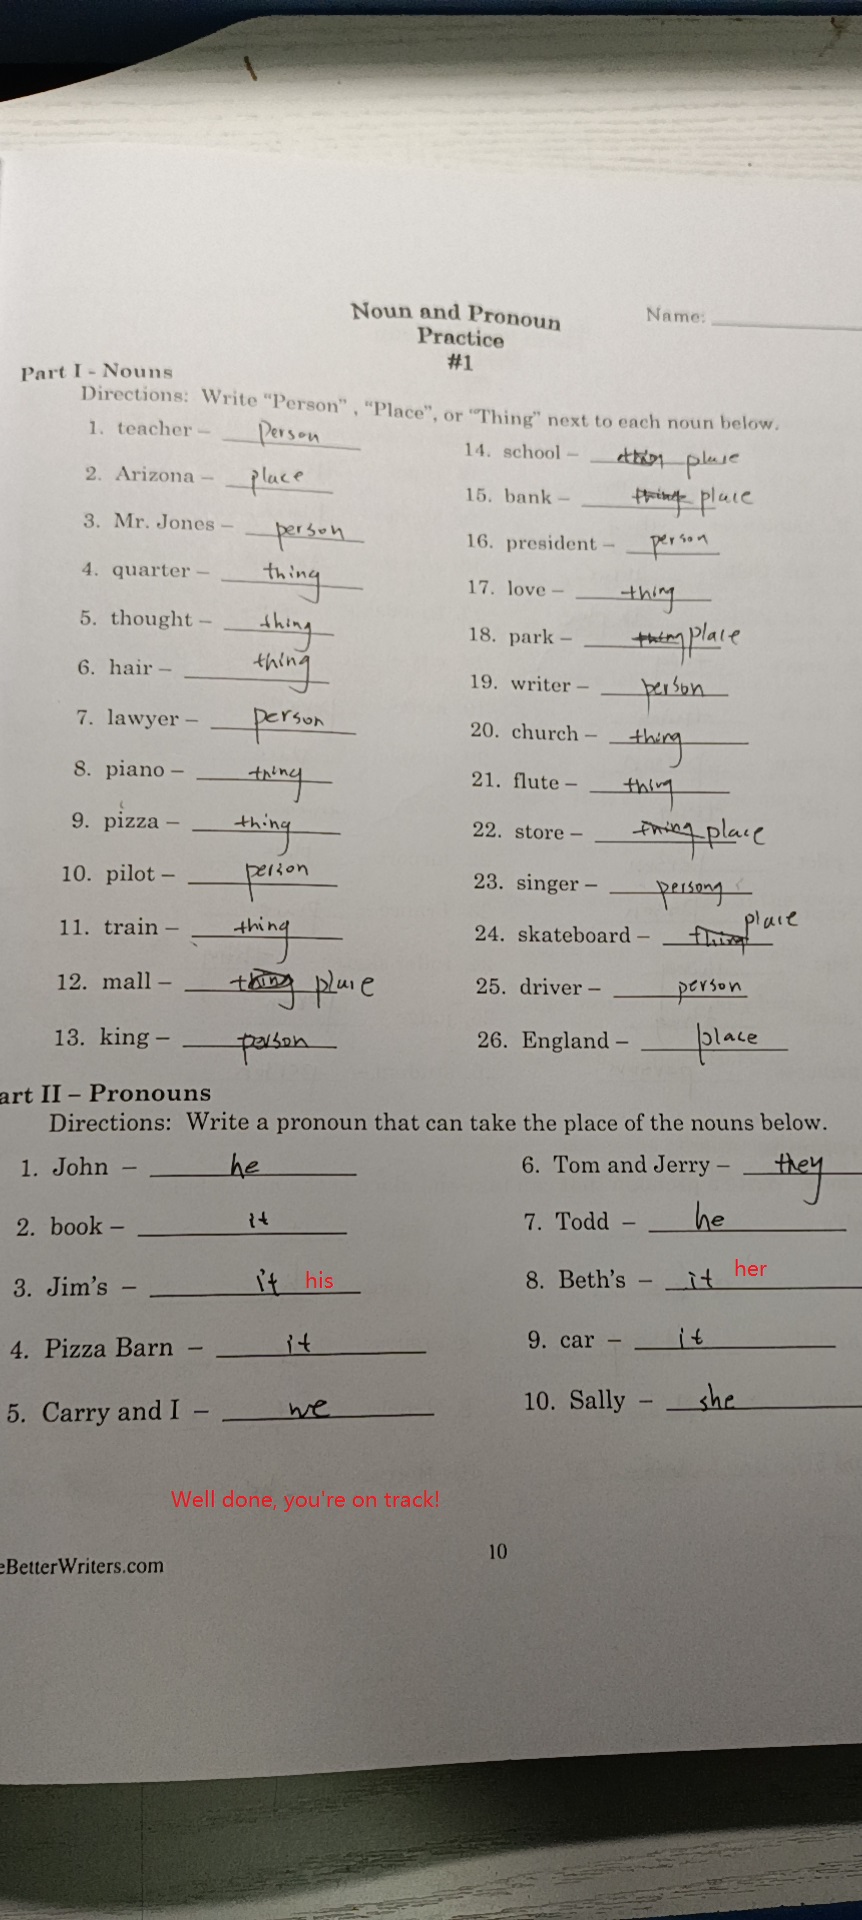 Noun and Pronoun
Practice
#1
Name:
Part I - Nouns
Directions: Write "Person" , "Place", or "Thing" next to each noun below.
1. teacher – Person
2. Arizona – place
3. Mr. Jones – person
4. quarter – thing
5. thought – thing
6. hair – thing
7. lawyer – person
8. piano – thing
9. pizza – thing
10. pilot – person
11. train – thing
12. mall – thing place
13. king – person
14. school – thing place
15. bank – thing place
16. president – person
17. love – thing
18. park – thing place
19. writer – person
20. church – thing
21. flute – thing
22. store – thing place
23. singer – persong
24. skateboard – thing place
25. driver – person
26. England – place
art II – Pronouns
Directions: Write a pronoun that can take the place of the nouns below.
1. John – he
2. book – it
3. Jim's – it his
4. Pizza Barn – it
5. Carry and I – we
6. Tom and Jerry – they
7. Todd – he
8. Beth's – it her
9. car – it
10. Sally – she
Well done, you're on track!
eBetterWriters.com
10